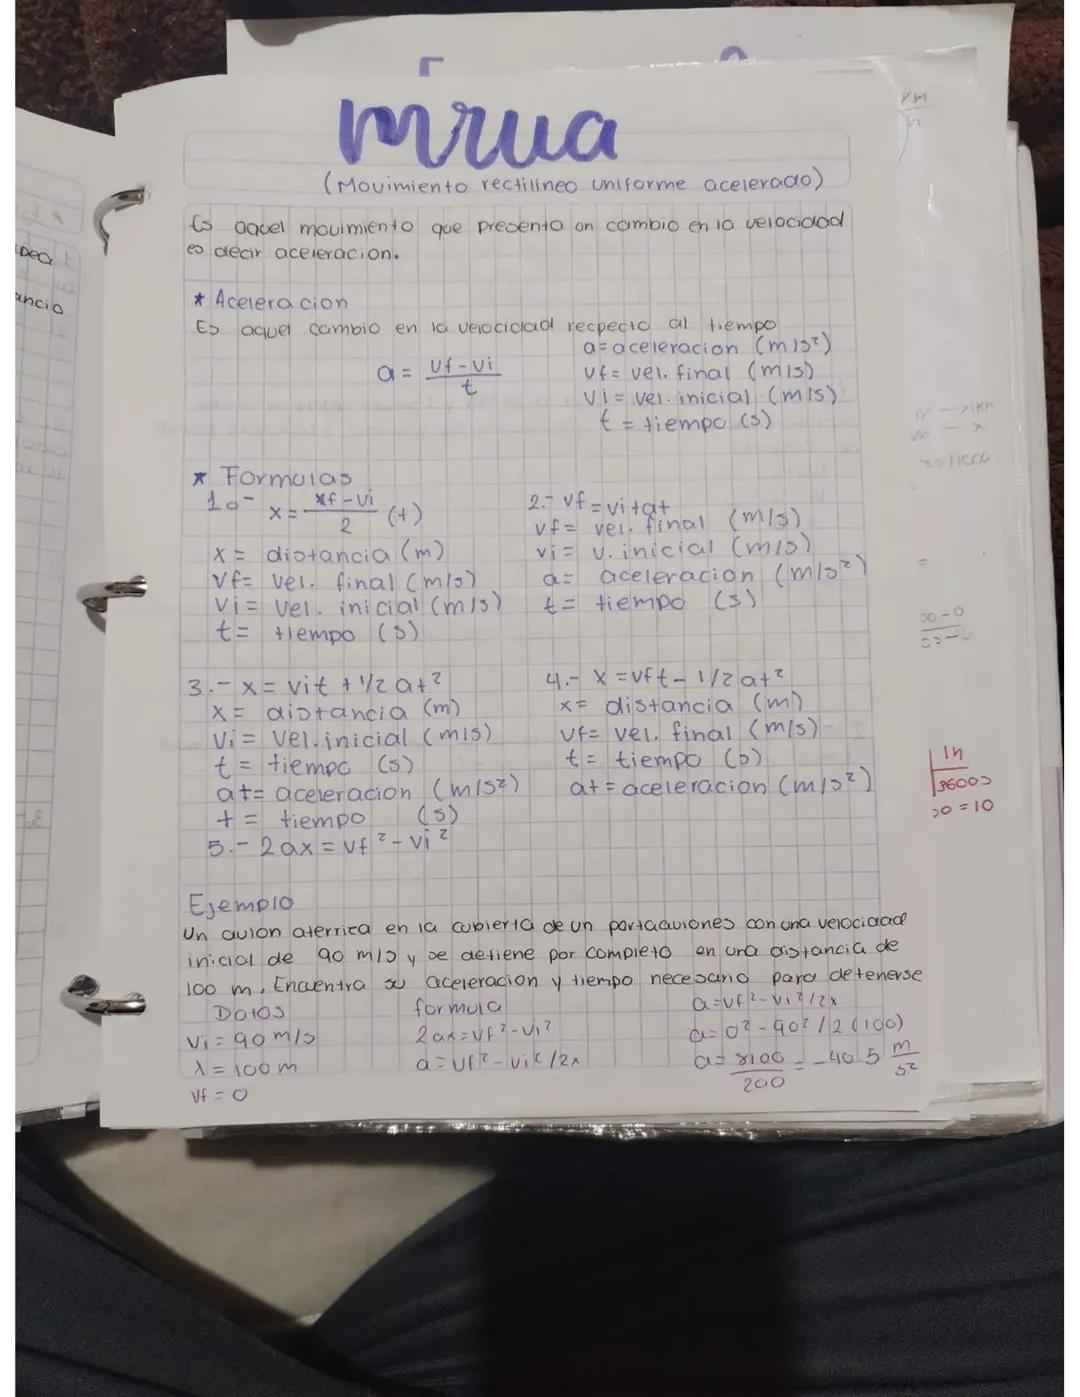 mrua
(Movimiento rectilineo uniforme acelerado)
Es aquel movimiento que presenta un cambio en la velocidad
es decir aceleracion.
* Aceleracion
Es aquel cambio en la velocidad recpecto al tiempo
a = vf - vi / t
a = aceleracion (m/s²)
vf = vel. final (m/s)
vi = vel. inicial (m/s)
t = tiempo (s)
* Formulas
1.- x = vf - vi / 2 (t)
x = distancia (m)
vf = vel. final (m/s)
vi = vel. inicial (m/s)
t = tiempo (s)
2.- vf = vi + at
vf = vel. final (m/s)
vi = v. inicial (m/s)
a = aceleracion (m/s²)
t = tiempo (s)
3.- x = vit + 1/2 at²
x = distancia (m)
vi = vel. inicial (m/s)
t = tiempo (s)
at = aceleracion (m/s²)
t = tiempo (s)
4.- x = vft - 1/2 at²
x = distancia (m)
vf = vel. final (m/s)
t = tiempo (s)
at = aceleracion (m/s²)
5.- 2ax = vf² - vi²
Ejemplo
Un avion aterriza en la cubierta de un portaaviones con una velocidad
inicial de 90 m/s y se detiene por completo en una distancia de
100 m. Encuentra su aceleracion y tiempo necesario para detenerse
Datos
vi = 90 m/s
x = 100 m
vf = 0
formula
2ax = vf² - vi²
a = vf² - vi² / 2x
a = vf² - vi² / 2x
a = 0² - 90² / 2(100)
a = 8100 / 200 = -40.5 m/s²
1h